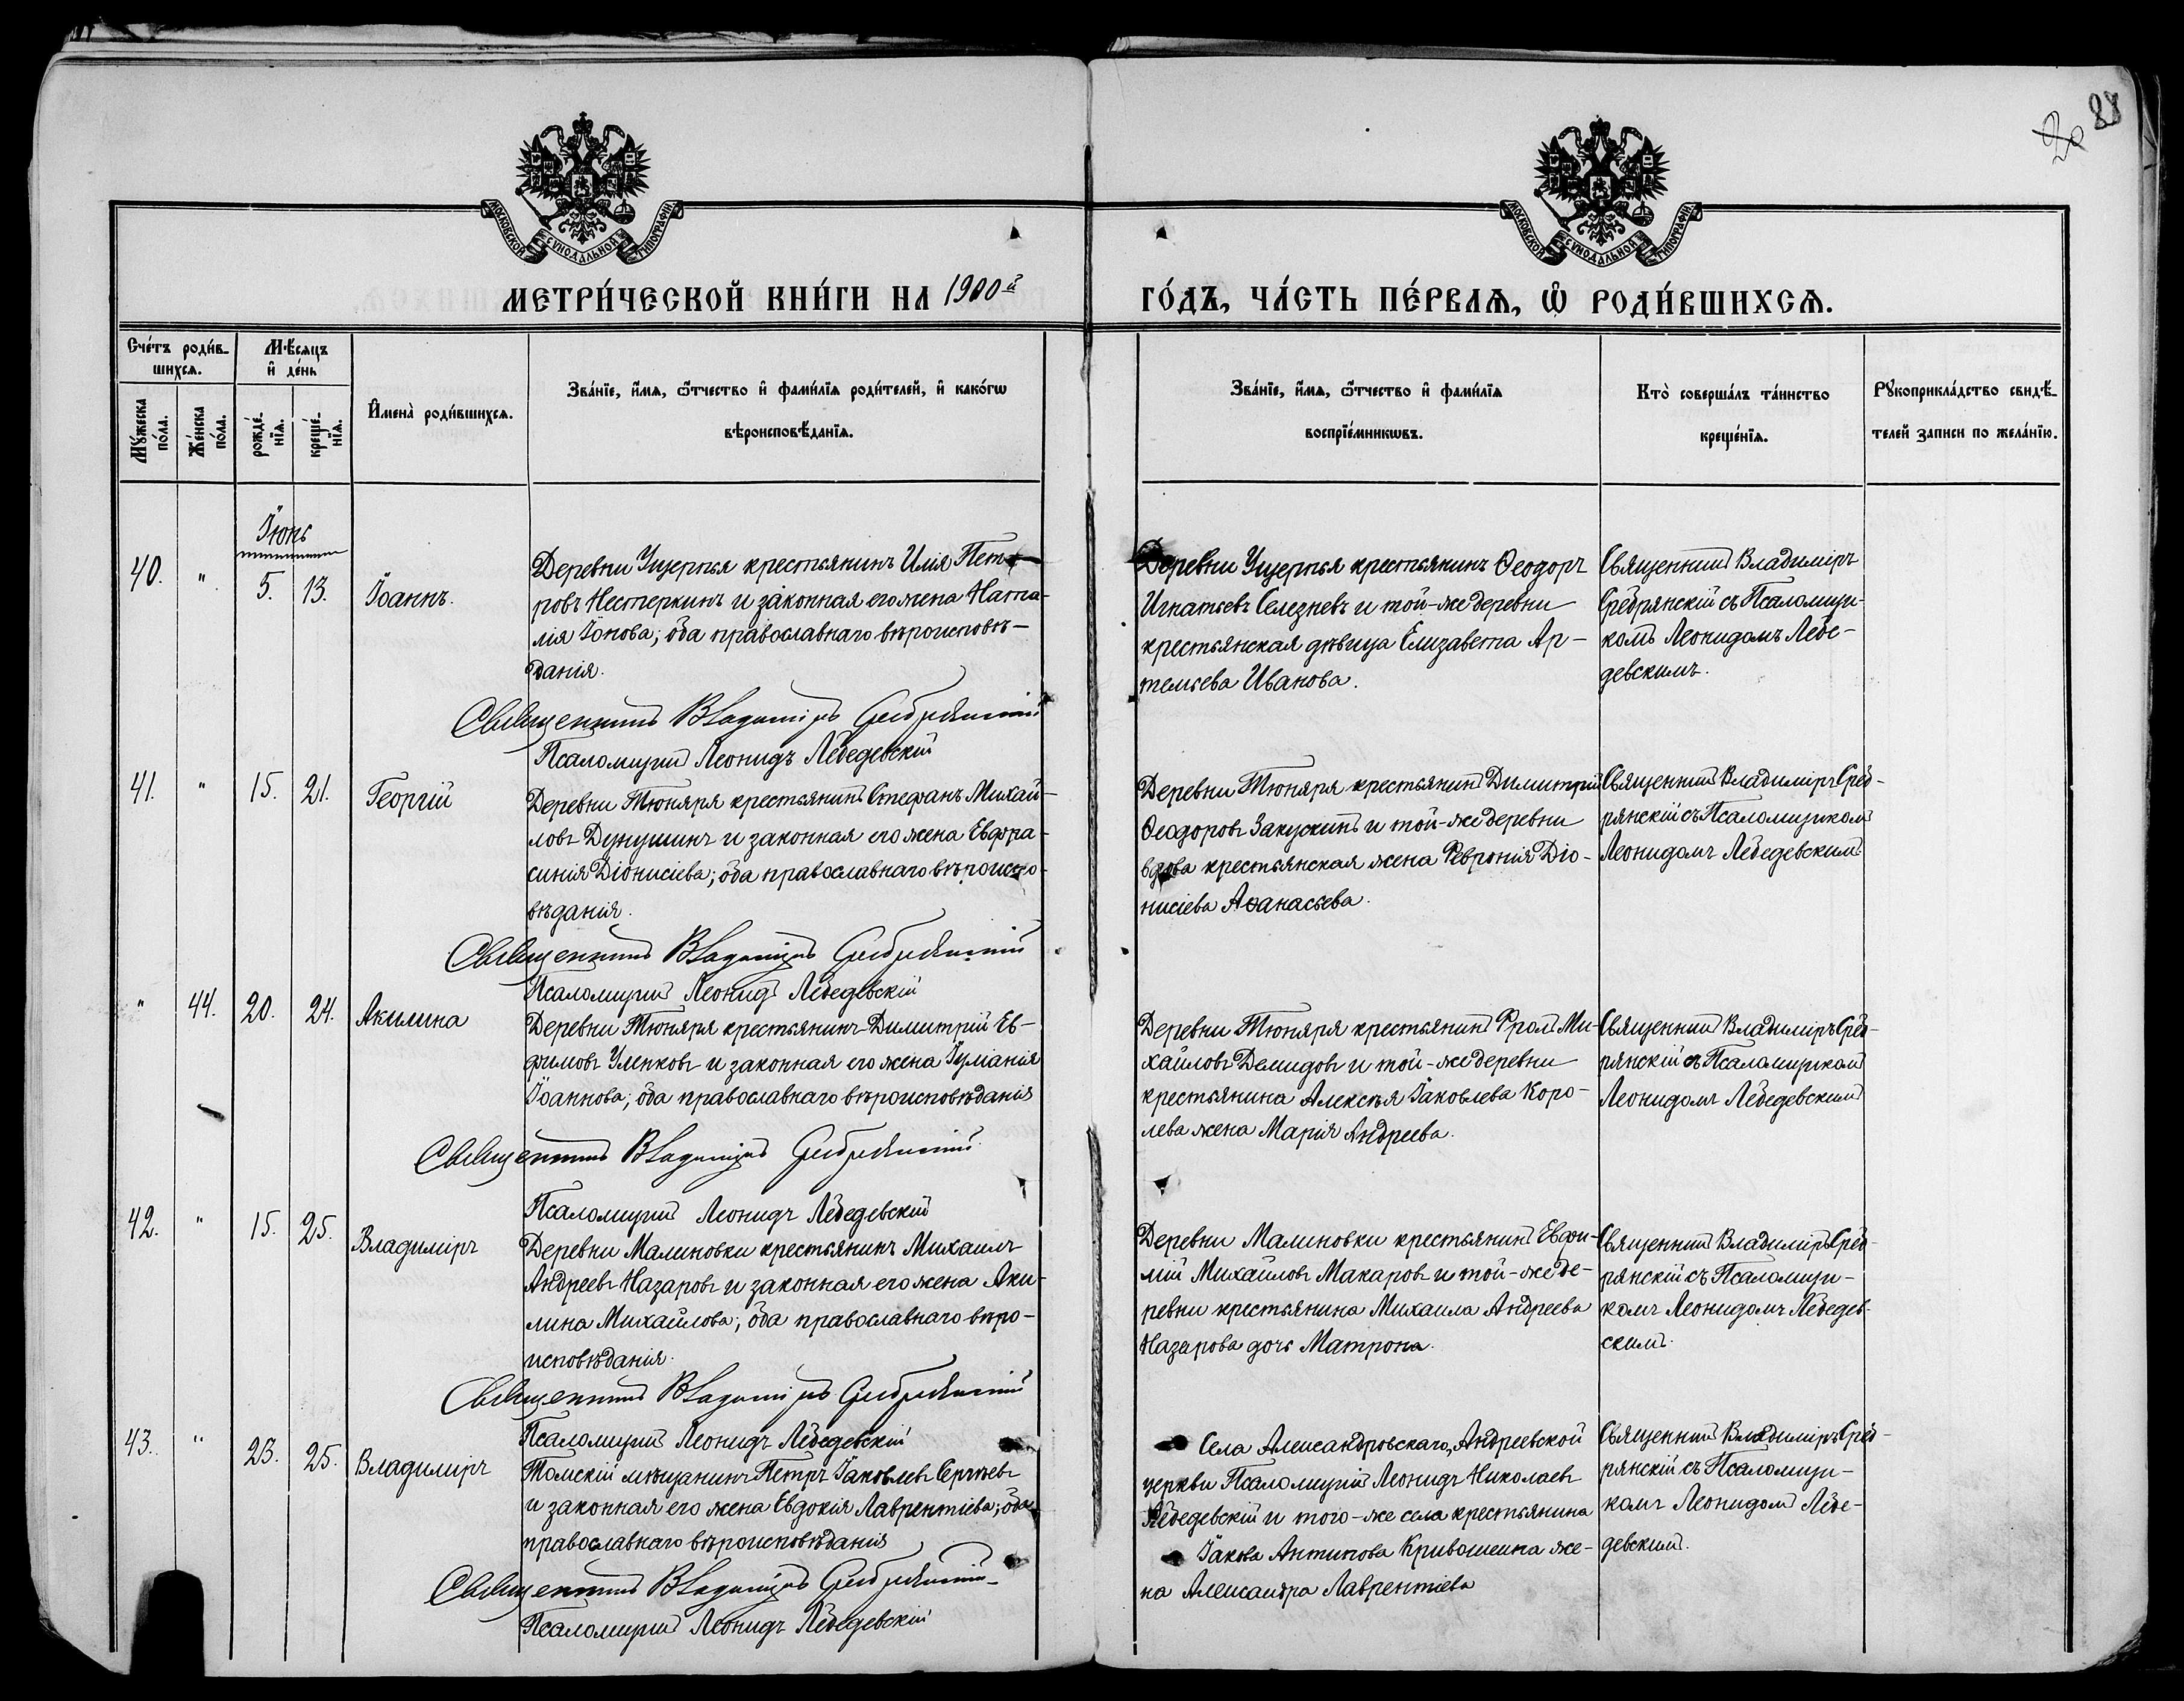 28
20
МОСКОВСКОЙ СѴНОДАЛЬНОЙ ТИПОГРАФІИ
МОСКОВСКОЙ СѴНОДАЛЬНОЙ ТИПОГРАФІИ
МЕТРИ́ЧЕСКОЙ КНИ́ГИ НА 1900й
ГО́ДЪ, ЧА́СТЬ ПЕ́РВАѦ, Ѡ҆ РОДИ́ВШИХСѦ.
Сче́тъ роди́в-
шихсѧ.
Мѣ́сѧцъ
и҆ де́нь
Мꙋ́жеска
по́ла.
Же́нска
по́ла.
рожде́-
нїѧ.
креще́-
нїѧ.
И҆мена̀ роди́вшихсѧ.
Зва́нїе, и҆́мѧ, ѻ҆́тчество и҆ фами́лїѧ роди́телей, и҆ како́гѡ
вѣроисповѣ́данїѧ.
Зва́нїе, и҆́мѧ, ѻ҆́тчество и҆ фами́лїѧ
воспрїе́мникѡвъ.
Кто̀ соверша́лъ та́инство
креще́нїѧ.
Рꙋкоприкла́дство свидѣ́-
телей записи по жела́нїю.
Іюнь
40. " 5. 13. Іоаннъ.
Деревни Ущерпья крестьянинъ Илія Пет-
ровъ Нестеркинъ и законная его жена Ната-
лія Іонова; оба православнаго вѣроисповѣ-
данія.
Священникъ Владиміръ Сребрянскій
Псаломщикъ Леонидъ Лебедевскій
Деревни Ущерпья крестьянинъ Ѳеодоръ
Игнатьевъ Селезневъ и той-же деревни
крестьянская дѣвица Елизавета Ар-
темьева Иванова.
Священникъ Владиміръ
Сребрянскій съ Псаломщи-
комъ Леонидомъ Лебе-
девскимъ.
41. " 15. 21. Георгій
Деревни Тюняря крестьянинъ Стефанъ Михай-
ловъ Дунушинъ и законная его жена Евфра-
синія Діонисіева; оба православнаго вѣроиспо-
вѣданія.
Священникъ Владиміръ Сребрянскій
Псаломщикъ Леонидъ Лебедевскій
Деревни Тюняря крестьянинъ Димитрій
Ѳеодоровъ Закускинъ и той-же деревни
вдова крестьянская жена Февронія Діо-
нисіева Аѳанасьева.
Священникъ Владиміръ Среб-
рянскій съ Псаломщикомъ
Леонидомъ Лебедевскимъ
" 44. 20. 24. Акилина
Деревни Тюняря крестьянинъ Димитрій Ев-
фимовъ Уленковъ и законная его жена Іуліанія
Іоаннова; оба православнаго вѣроисповѣданія
Священникъ Владиміръ Сребрянскій
Псаломщикъ Леонидъ Лебедевскій
Деревни Тюняря крестьянинъ Фролъ Ми-
хайловъ Демидовъ и той-же деревни
крестьянина Алексѣя Іаковлева Коро-
лева жена Марія Андреева.
Священникъ Владиміръ Среб-
рянскій съ Псаломщикомъ
Леонидомъ Лебедевскимъ
42. " 15. 25. Владиміръ
Деревни Малиновки крестьянинъ Михаилъ
Андреевъ Назаровъ и законная его жена Аки-
лина Михайлова; оба православнаго вѣро-
исповѣданія.
Священникъ Владиміръ Сребрянскій
Псаломщикъ Леонидъ Лебедевскій
Деревни Малиновки крестьянинъ Евфи-
мій Михайловъ Макаровъ и той-же де-
ревни крестьянина Михаила Андреева
Назарова дочь Матрона.
Священникъ Владиміръ Среб-
рянскій съ Псаломщи-
комъ Леонидомъ Лебедев-
скимъ.
43. " 23. 25. Владиміръ
Томскій мѣщанинъ Петръ Іаковлевъ Сергѣевъ
и законная его жена Евдокія Лаврентіева; оба
православнаго вѣроисповѣданія
Священникъ Владиміръ Сребрянскій
Псаломщикъ Леонидъ Лебедевскій
Села Александровскаго, Андреевской
церкви Псаломщикъ Леонидъ Николаевъ
Лебедевскій и того-же села крестьянина
Іакова Антипова Кривошеина же-
на Александра Лаврентіева
Священникъ Владиміръ Среб-
рянскій съ Псаломщи-
комъ Леонидомъ Лебе-
девскимъ.